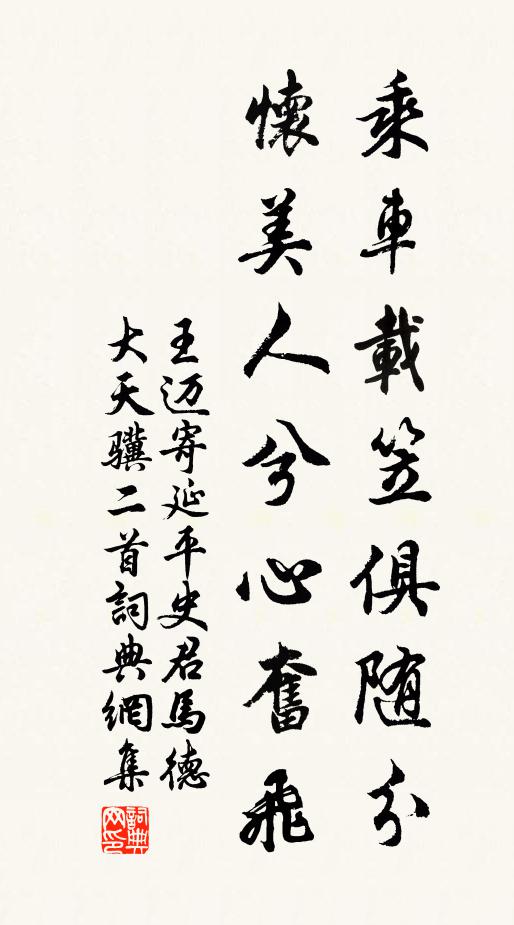 乘車載笠俱随分
懷美人兮心奮飛
王迈寄延平史君馬德
大天驥二首詞典網集
詞典
网印